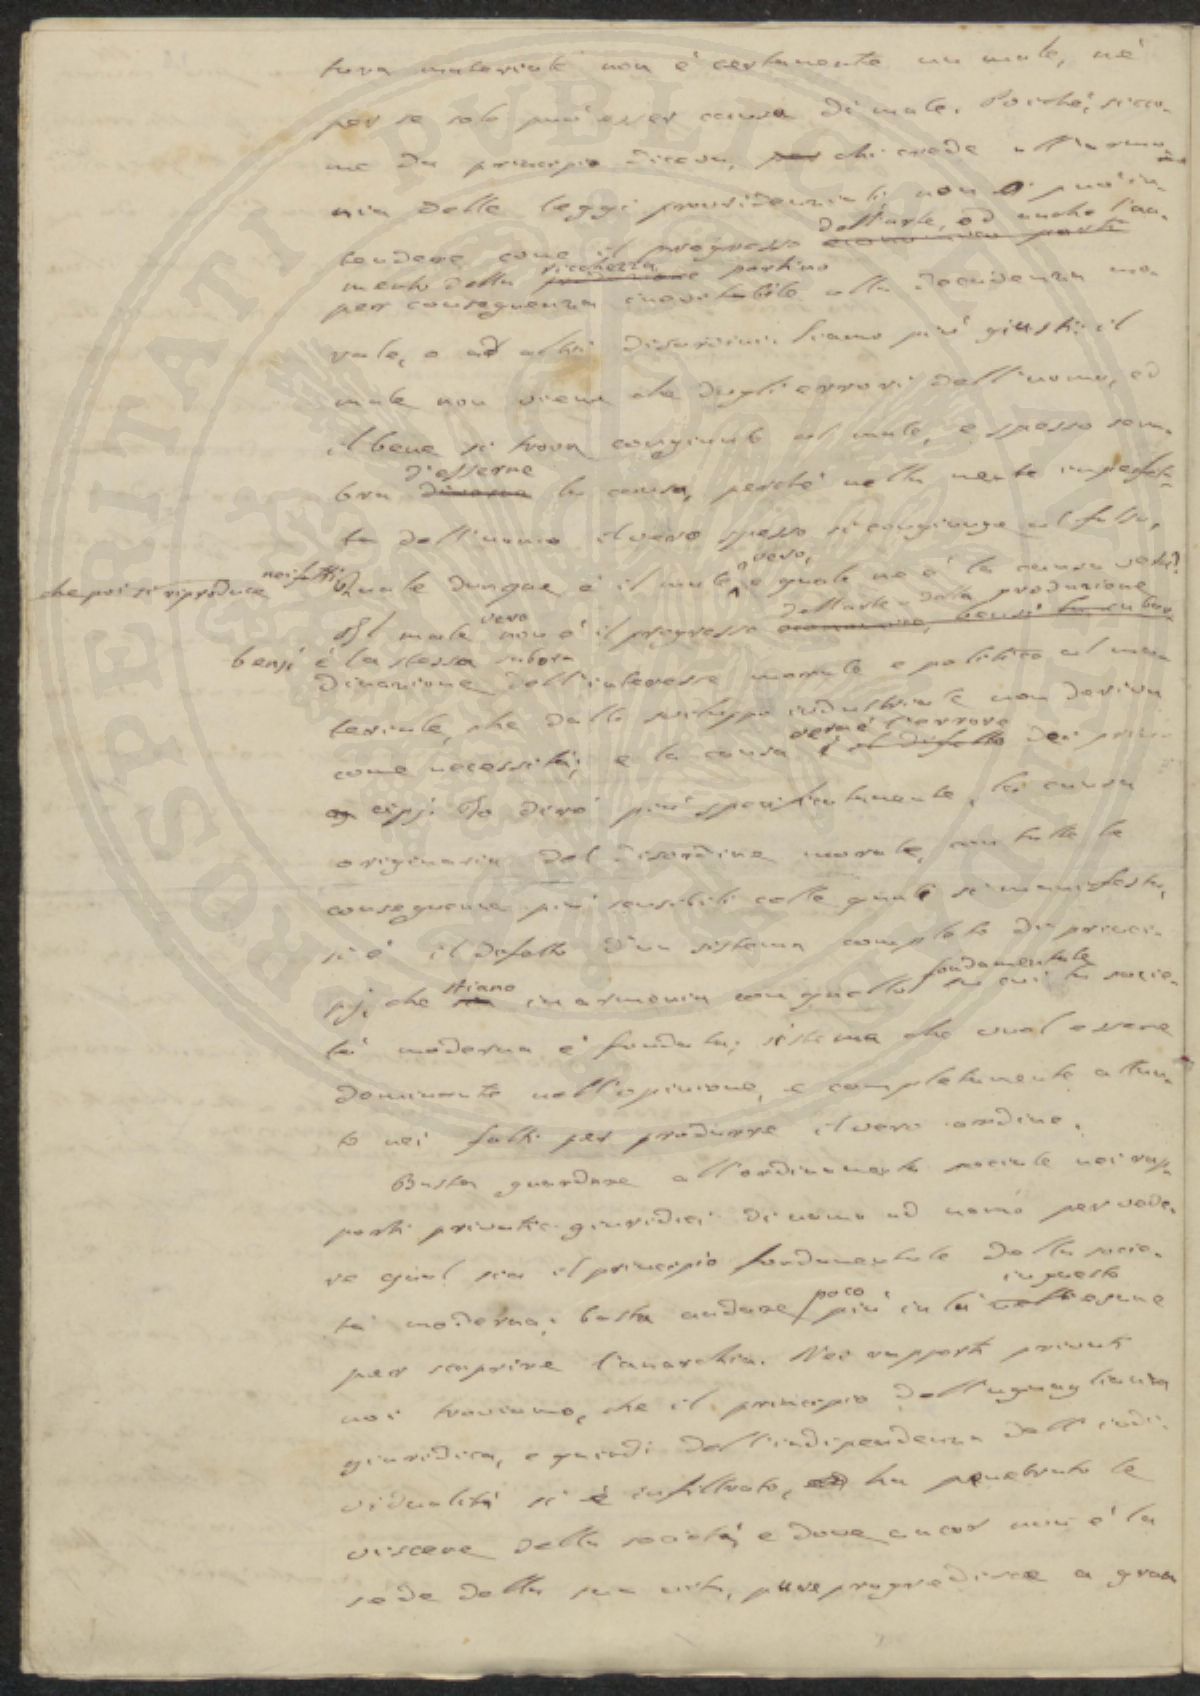 tura materiale non è certamente un male, nè
per se solo può esser causa di male. Poichè, sicco-
me da principio diceva, per chi crede all'armo-
nia delle leggi provvidenziali non si può in-
dell'arte, ed anche l'au-
tendere come il progresso economico porti
mento della ricchezza produzione portino
per conseguenza inevitabile alla decadenza mo-
rale, o ad altri disordini. Siamo più giusti: il
male non viene che dagli errori dell'uomo, ed
il bene si trova congiunto al male, e spesso sem-
d'esserne
bra divenire la causa, perchè nella mente imperfet-
ta dell'uomo il vero spesso si congiunge al falso,
che poi si riproduce nei fatti. Quale dunque è il male vero, e quale ne è la causa vera?
dell'arte e della produzione
Il male vero non è il progresso economico, bensì la subor
bensì è la stessa subor
dinazione dell'interesse morale e politico al ma-
teriale, che dallo sviluppo industriale non deriva
come necessità; e la causa vera è l'errore è il difetto dei prin-
cipj. Io dirò più specificatamente, la causa
originaria del disordine morale, con tutte le
conseguenze più sensibili colle quali si manifesta,
si è il difetto d'un sistema completo di princi-
pj, che stiano in armonia con quello fondamentale su cui la socie-
tà moderna è fondata; sistema che vuol essere
dominante nell'opinione, e completamente attua-
to nei fatti per produrre il vero ordine.
Basta guardare all'ordinamento sociale nei rap-
porti privati e giuridici di uomo ad uomo per vede-
re qual sia il principio fondamentale della socie-
tà moderna; basta andare poco più in là in questo nell'esame
per scoprire l'anarchia. Nei rapporti privati
noi troviamo, che il principio dell'uguaglianza
giuridica, e quindi dell'indipendenza dell'indi-
vidualità si è infiltrato, ed ha penetrato le
viscere della società, e dove ancor non è la
sede della sua vita, pure progredisce a gran